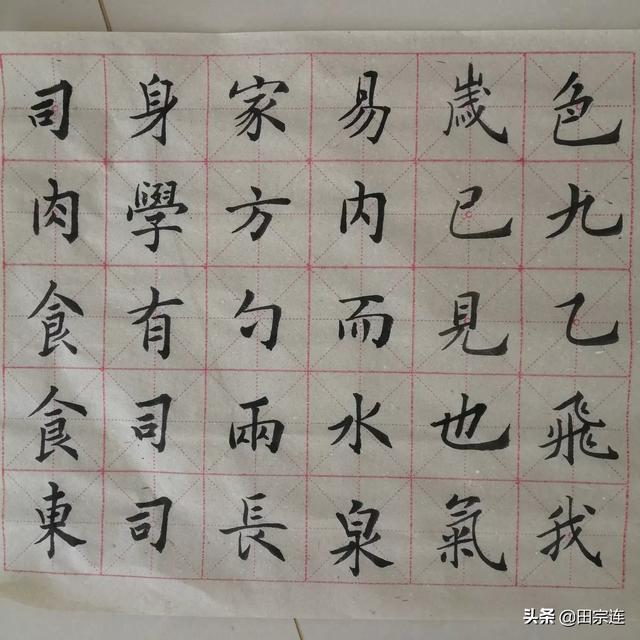 色九乙飛我
歲已見也氣
易内而水泉
家方勺兩長
身學有司司
司肉食食東
头条 @田宗连